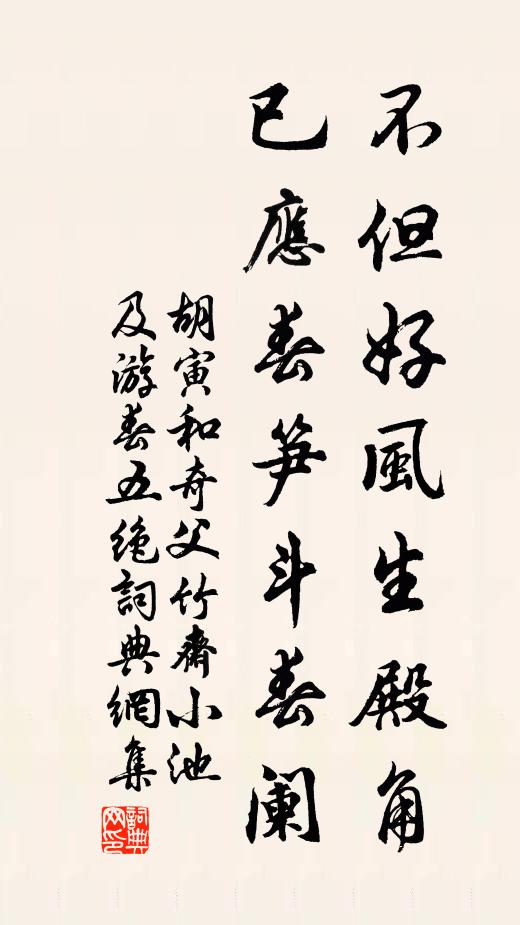 不但好風生殿角
已應春笋斗春阑
胡寅和奇父竹齋小池
及游春五绝詞典網集
詞典網印